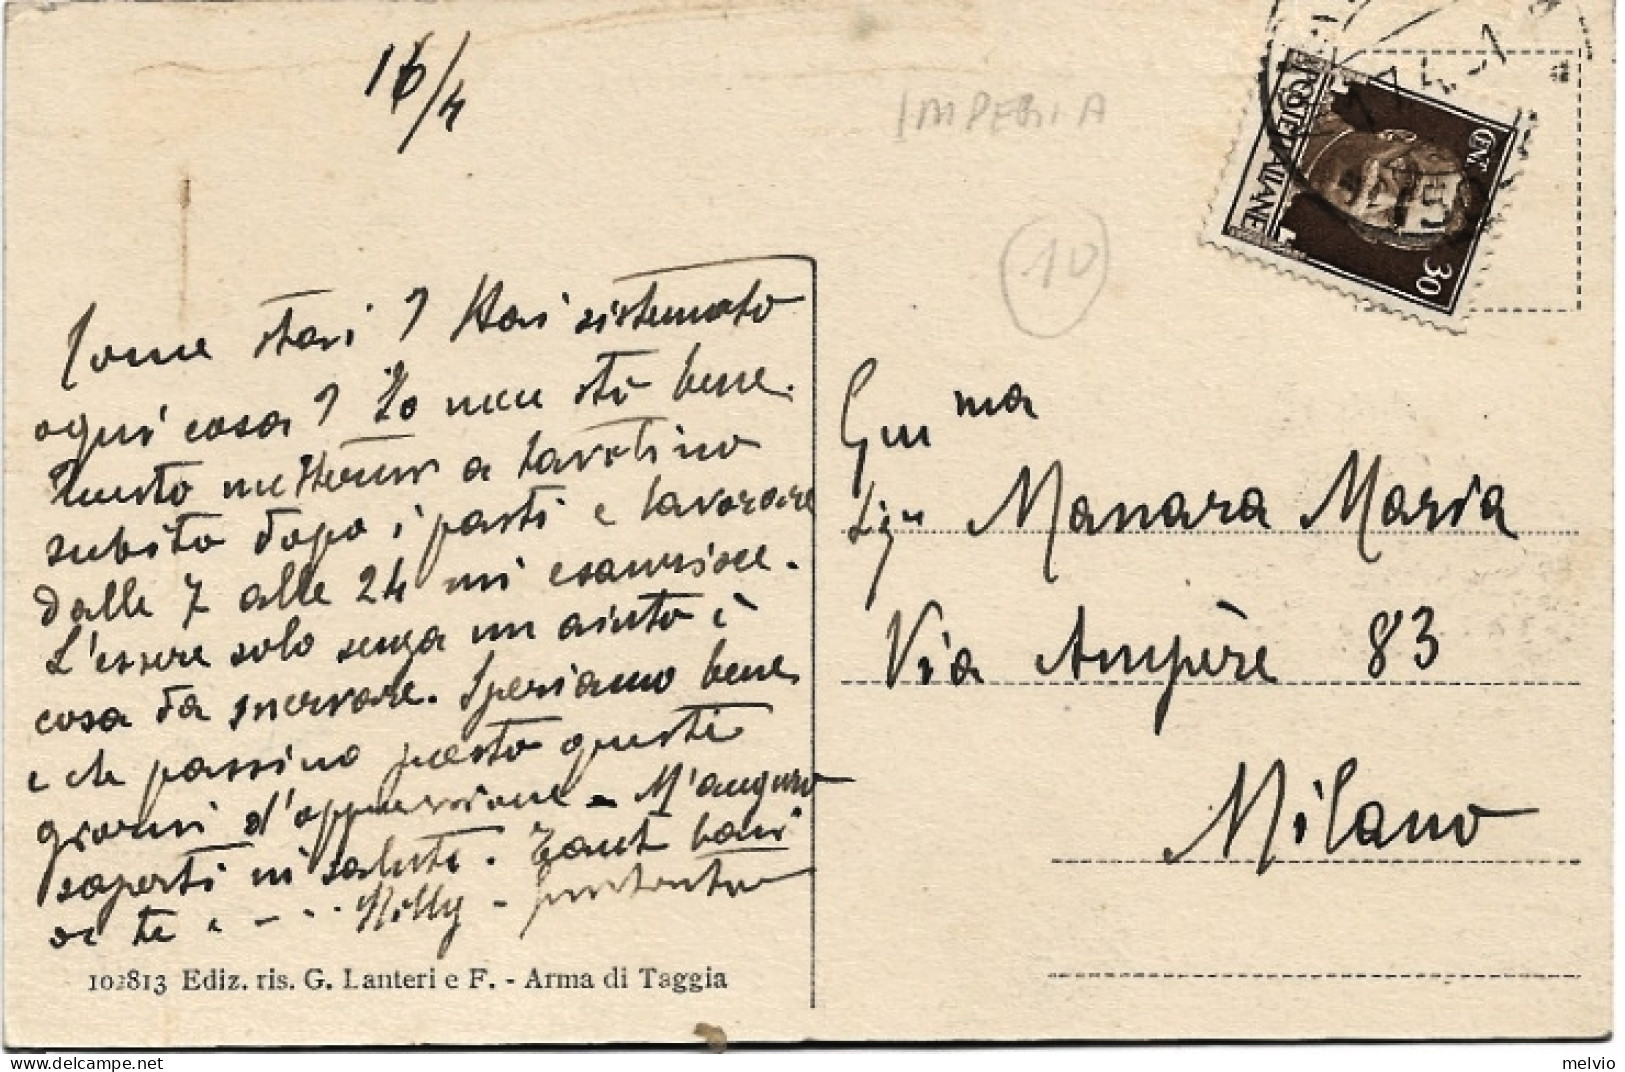 16/4
IMPERIA
10
POSTE ITALIANE
CENT. 30
Come stai? Hai sistemato
ogni cosa? Io non sto bene.
Questo mettermi a tavolino
subito dopo i pasti e lavorare
dalle 7 alle 24 mi esaurisce.
L'essere solo senza un aiuto è
cosa da snervare. Speriamo bene
e che passino presto questi
giorni d'oppressione - M'auguro
saperti in salute. Tanti baci
a te Molly -
Gen ma
Sig.na Manara Maria
Via Ampère 83
Milano
102813 Ediz. ris. G. Lanteri e F. - Arma di Taggia
melvio